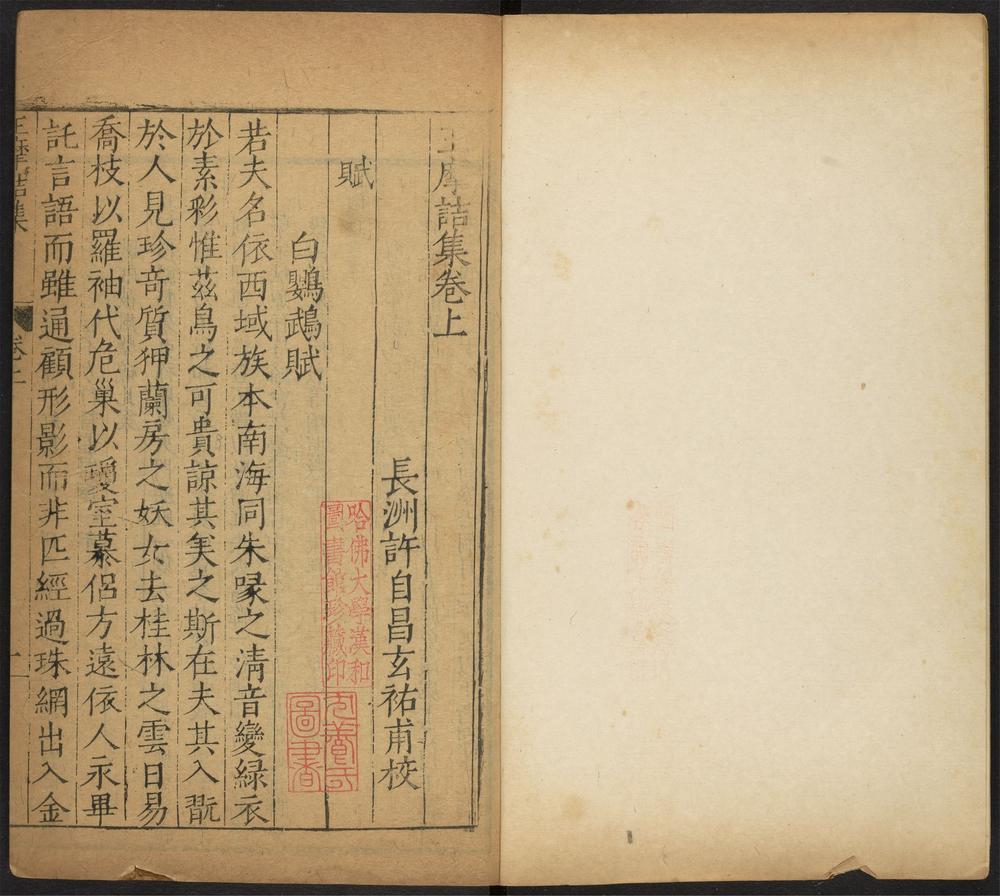 王摩詰集卷上
長洲許自昌玄祐甫校
賦
白鸚鵡賦
若夫名依西域族本南海同朱喙之清音變緑衣
於素彩惟茲鳥之可貴諒其美之斯在夫其入翫
於人見珍奇質狎蘭房之妖女去桂林之雲日易
喬枝以羅袖代危巢以瓊室慕侶方遠依人永畢
託言語而雖通顧形影而非匹經過珠網出入金
王摩詰集
卷上
一
哈佛大學漢和
圖書館珍藏印
圖書